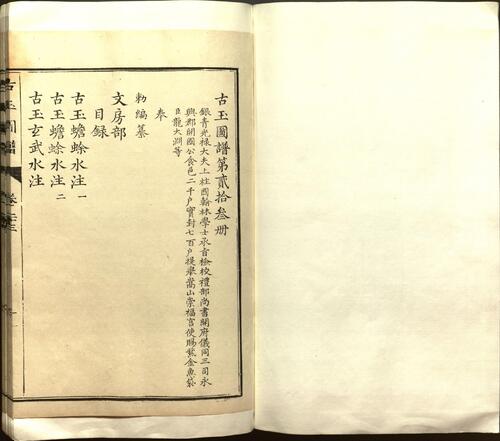 古玉圖譜第貳拾叁冊
銀青光祿大夫上柱國翰林學士承旨檢校禮部尚書開府儀同三司永
興郡開國公食邑二千戶實封七百戶提舉嵩山崇福宮使賜紫金魚袋
臣龍大淵等
奉
勅編纂
文房部
目錄
古玉蟾蜍水注 一
古玉蟾蜍水注 二
古玉玄武水注
古玉圖譜
卷二十三